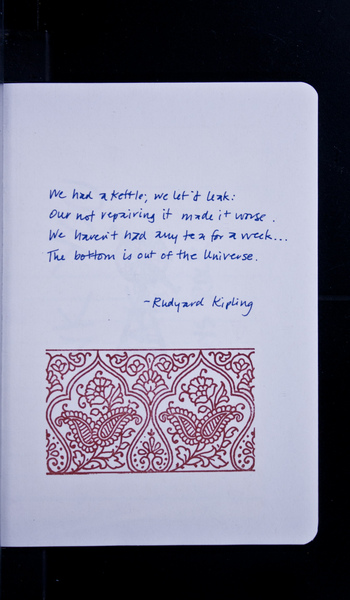 We had a kettle; we let it leak:
Our not repairing it made it worse.
We haven't had any tea for a week...
The bottom is out of the Universe.
-Rudyard Kipling